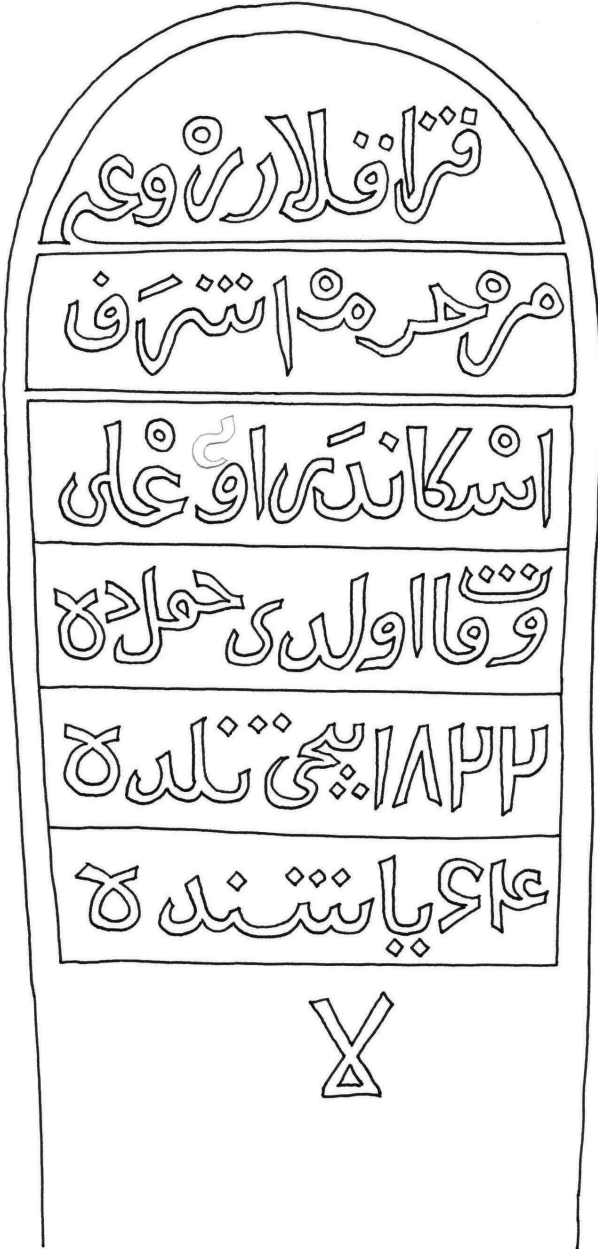 قزاقلار رْوعى
مرْحرمْ اشرَف
اسْكاندَر اوعْلى
وفات اولدى حملده
١٨٢٢ ينچى يلده
۶۴ ياشنده